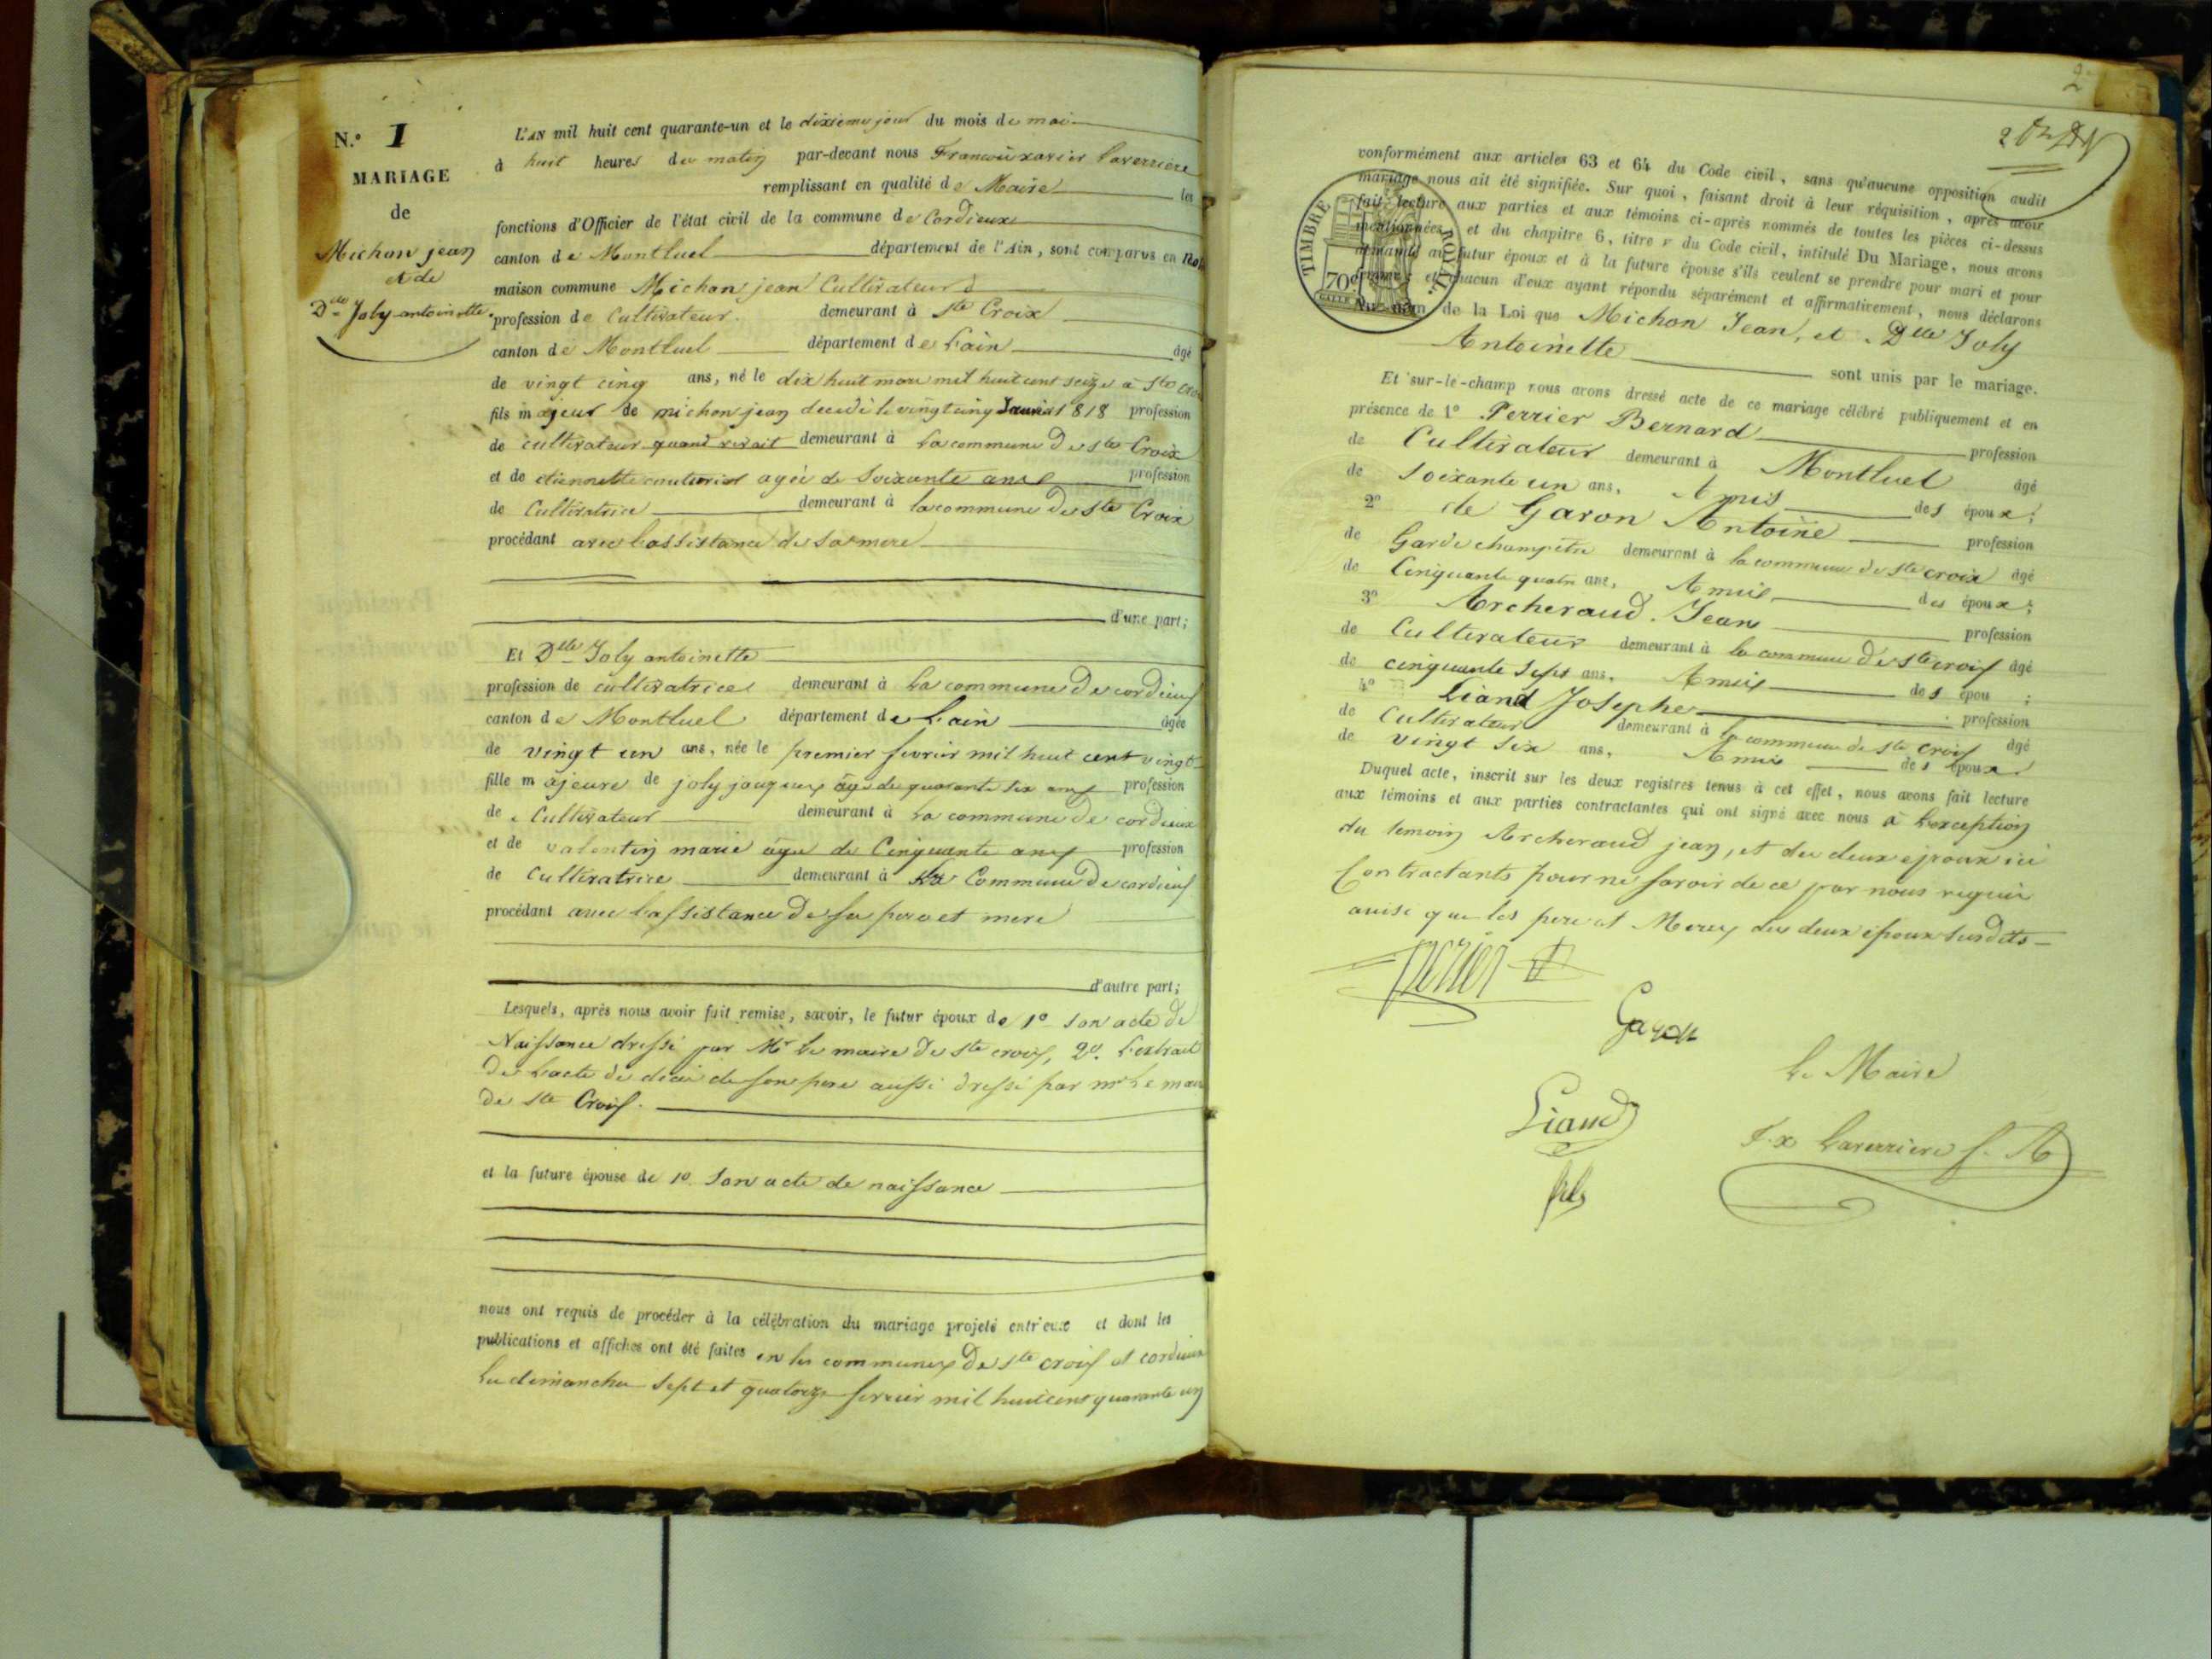 N.° 1
MARIAGE
de
Michon jean
et de
Dlle Joly antoinette
L'AN mil huit cent quarante-un et le dixieme jour du mois de mai
à huit heures du matin par-devant nous Francoi xavier Laverriere
remplissant en qualité de Maire les
fonctions d'Officier de l'état civil de la commune de Cordieux
canton de Montluel département de l'Ain, sont comparus en notre
maison commune Michon jean Cultivateur
profession de Cultivateur. demeurant à ste Croix
canton de Montluel département de Lain âgé
de vingt cinq ans, né le dix huit mars mil huit cent seize a ste Croix
fils majeur de michon jean decedé le vingt cinq Janvier 1818 profession
de cultivateur quand vivait demeurant à La commune De ste Croix
et de etiennette couturier agée de Soixante ans profession
de Cultivatrice demeurant à la commune De ste Croix
procédant avec Lassistance de Sa mere
d'une part;
Et Dlle Joly antoinette
profession de cultivatrice demeurant à La commune De cordieux
canton de Montluel département de Lain âgée
de vingt un ans, née le premier fevrier mil huit cent vingt
fille majeure de joly jacques âgé de quarante six ans profession
de Cultivateur demeurant à La commune De cordieux
et de valentin marie âgée de Cinquante ans profession
de Cultivatrice demeurant à La Commune De cordieux
procédant avec Lassistance De sa pere et mere
d'autre part;
Lesquels, après nous avoir fait remise, savoir, le futur époux de 1° Son acte de
Naissance dressé par Mr Le maire De ste croix, 2°. Lextrait
De Lacte de décé de son pere aussi dressé par mr Le maire
De ste Croix.
et la future épouse de 1° Son acte de naissance
nous ont requis de procéder à la célébration du mariage projeté entr'eux et dont les
publications et affiches ont été faites en les communes De ste croix et cordieux
Les dimanches Sept et quatorze fevrier mil huit cent quarante un
2
conformément aux articles 63 et 64 du Code civil, sans qu'aucune opposition audit
mariage nous ait été signifiée. Sur quoi, faisant droit à leur réquisition, après avoir
fait lecture aux parties et aux témoins ci-après nommés de toutes les pièces ci-dessus
mentionnées, et du chapitre 6, titre v du Code civil, intitulé Du Mariage, nous avons
demandé au futur époux et à la future épouse s'ils veulent se prendre pour mari et pour
femme; et chacun d'eux ayant répondu séparément et affirmativement, nous déclarons
Au nom de la Loi que Michon Jean, et Dlle Joly
Antoinette sont unis par le mariage.
TIMBRE ROYAL
70
Et sur-le-champ nous avons dressé acte de ce mariage célébré publiquement et en
présence de 1° Perrier Bernard profession
de Cultivateur demeurant à Montluel âgé
de Soixante un ans, Amis des époux;
2° de Garon Antoine profession
de Garde champetre demeurant à la commune de ste croix âgé
de Cinquante quatre ans, Amis des époux;
3° Archeraud Jean profession
de Cultivateur demeurant à la commune De ste croix âgé
de cinquante Sept ans, Amis des épou ;
4° Liand Josephe profession
de Cultivateur demeurant à la commune de ste croix âgé
de vingt Six ans, Amis des époux.
Duquel acte, inscrit sur les deux registres tenus à cet effet, nous avons fait lecture
aux témoins et aux parties contractantes qui ont signé avec nous à Lexception
du temoin Archeraud jean, et des deux époux ici
Contractants pour ne savoir de ce par nous requis
ainsi que les pere et Meres des deux époux Susdits
perier
Garon
Liand
fils
Le Maire
F. x Laverriere